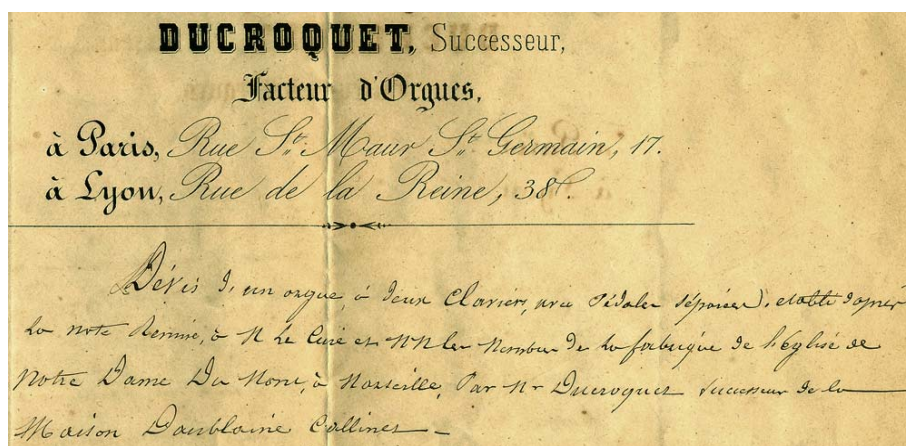 DUCROQUET, Successeur,
Facteur d'Orgues,
à Paris, Rue St. Maur St. Germain, 17.
à Lyon, Rue de la Reine, 38.
Dévis d'un orgue, à deux Claviers, avec Pédales séparées, etabli d'après
la note Remise, à M Le Curé et MM les Membres De la fabrique de l'église de
Notre Dame Du Mont, à Marseille, Par Mr Ducroquet successeur de la
Maison Daublaine Callinet